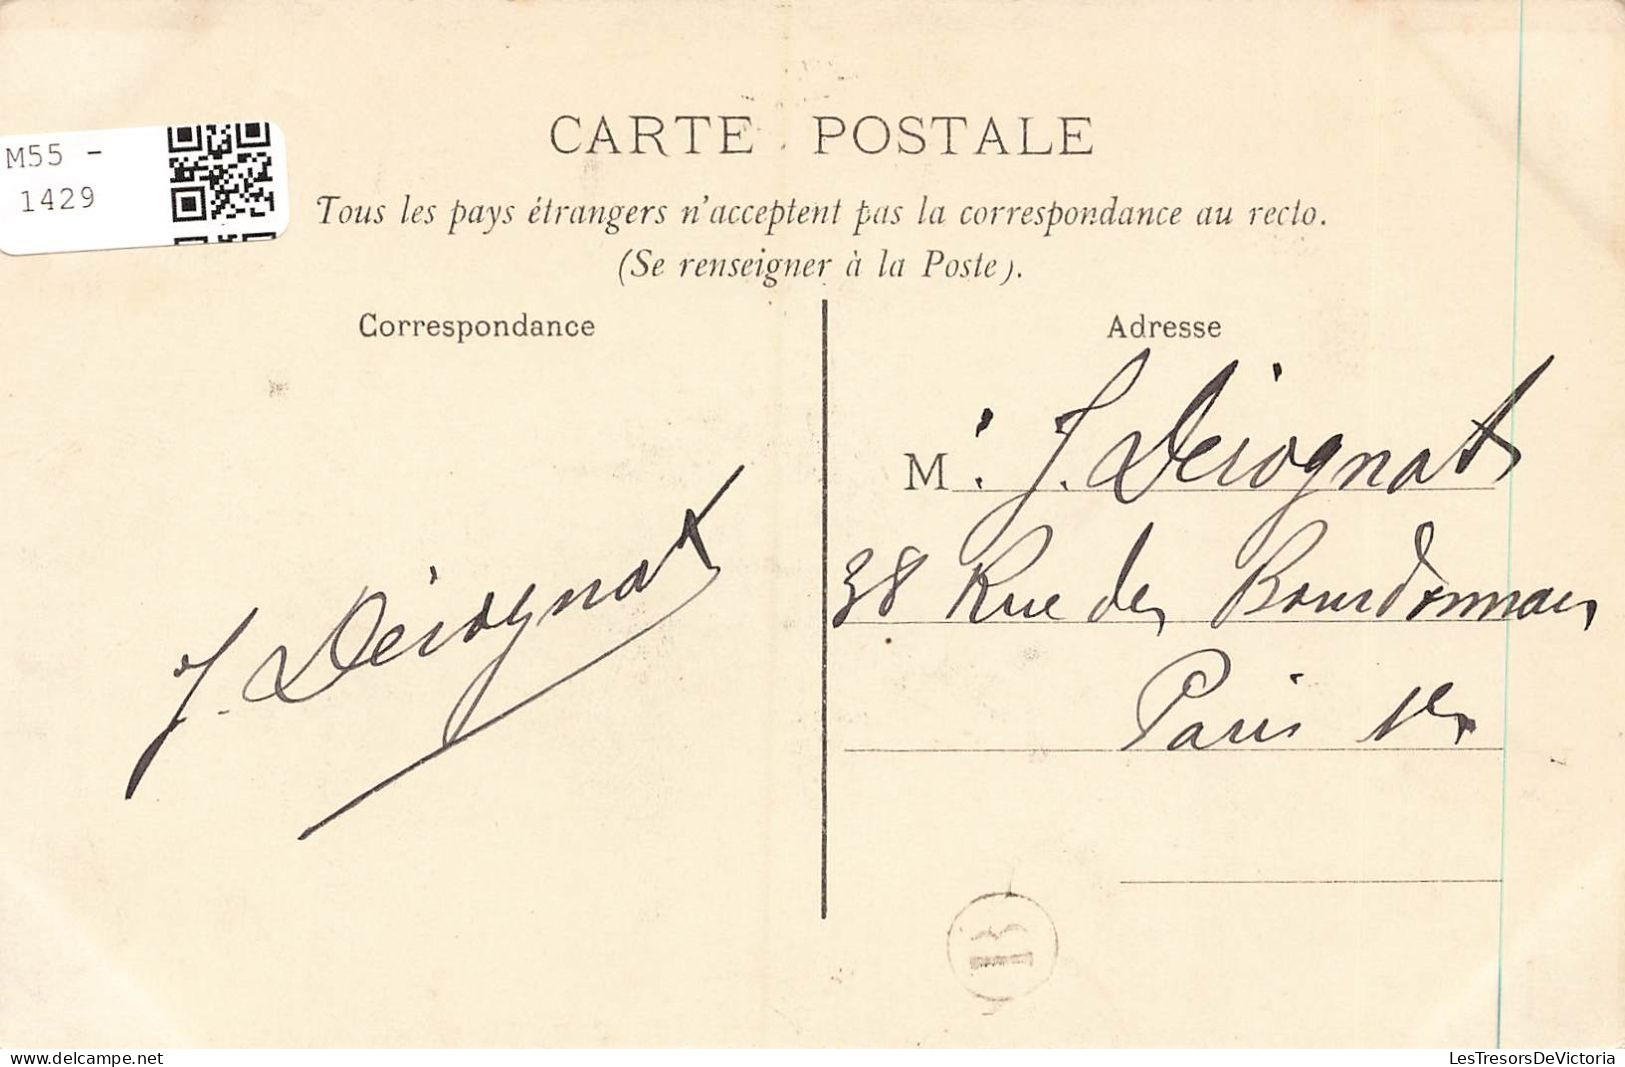 M55 -
1429
CARTE POSTALE
Tous les pays étrangers n'acceptent pas la correspondance au recto.
(Se renseigner à la Poste).
Correspondance
J. Dérognat
Adresse
M. J. Dérognat
38 Rue des Bourdonnais
Paris 1er
delcampe.net
LesTresorsDeVictoria